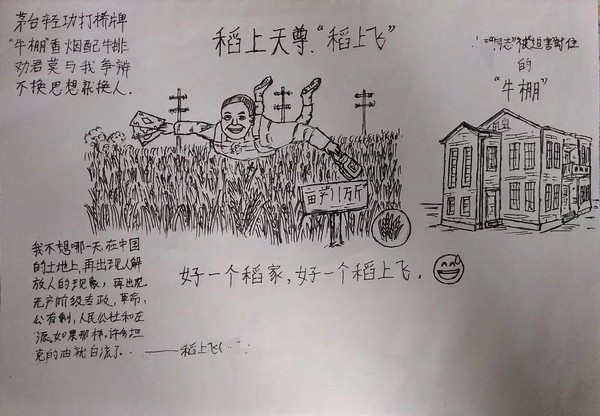 茅台轻功打桥牌
"牛棚"香烟配牛排
劝君莫与我争辩
不换思想就换人.
稻上天尊:"稻上飞"
"同志"被迫害时住
的
"牛棚"
亩产1万斤
好一个稻家,好一个稻上飞.
我不想哪一天,在中国
的土地上,再出现人解
放人的现象,再出现
无产阶级专政,革命,
公有制,人民公社和左
派.如果那样,许多坦
克的油就白流了...
——稻上飞